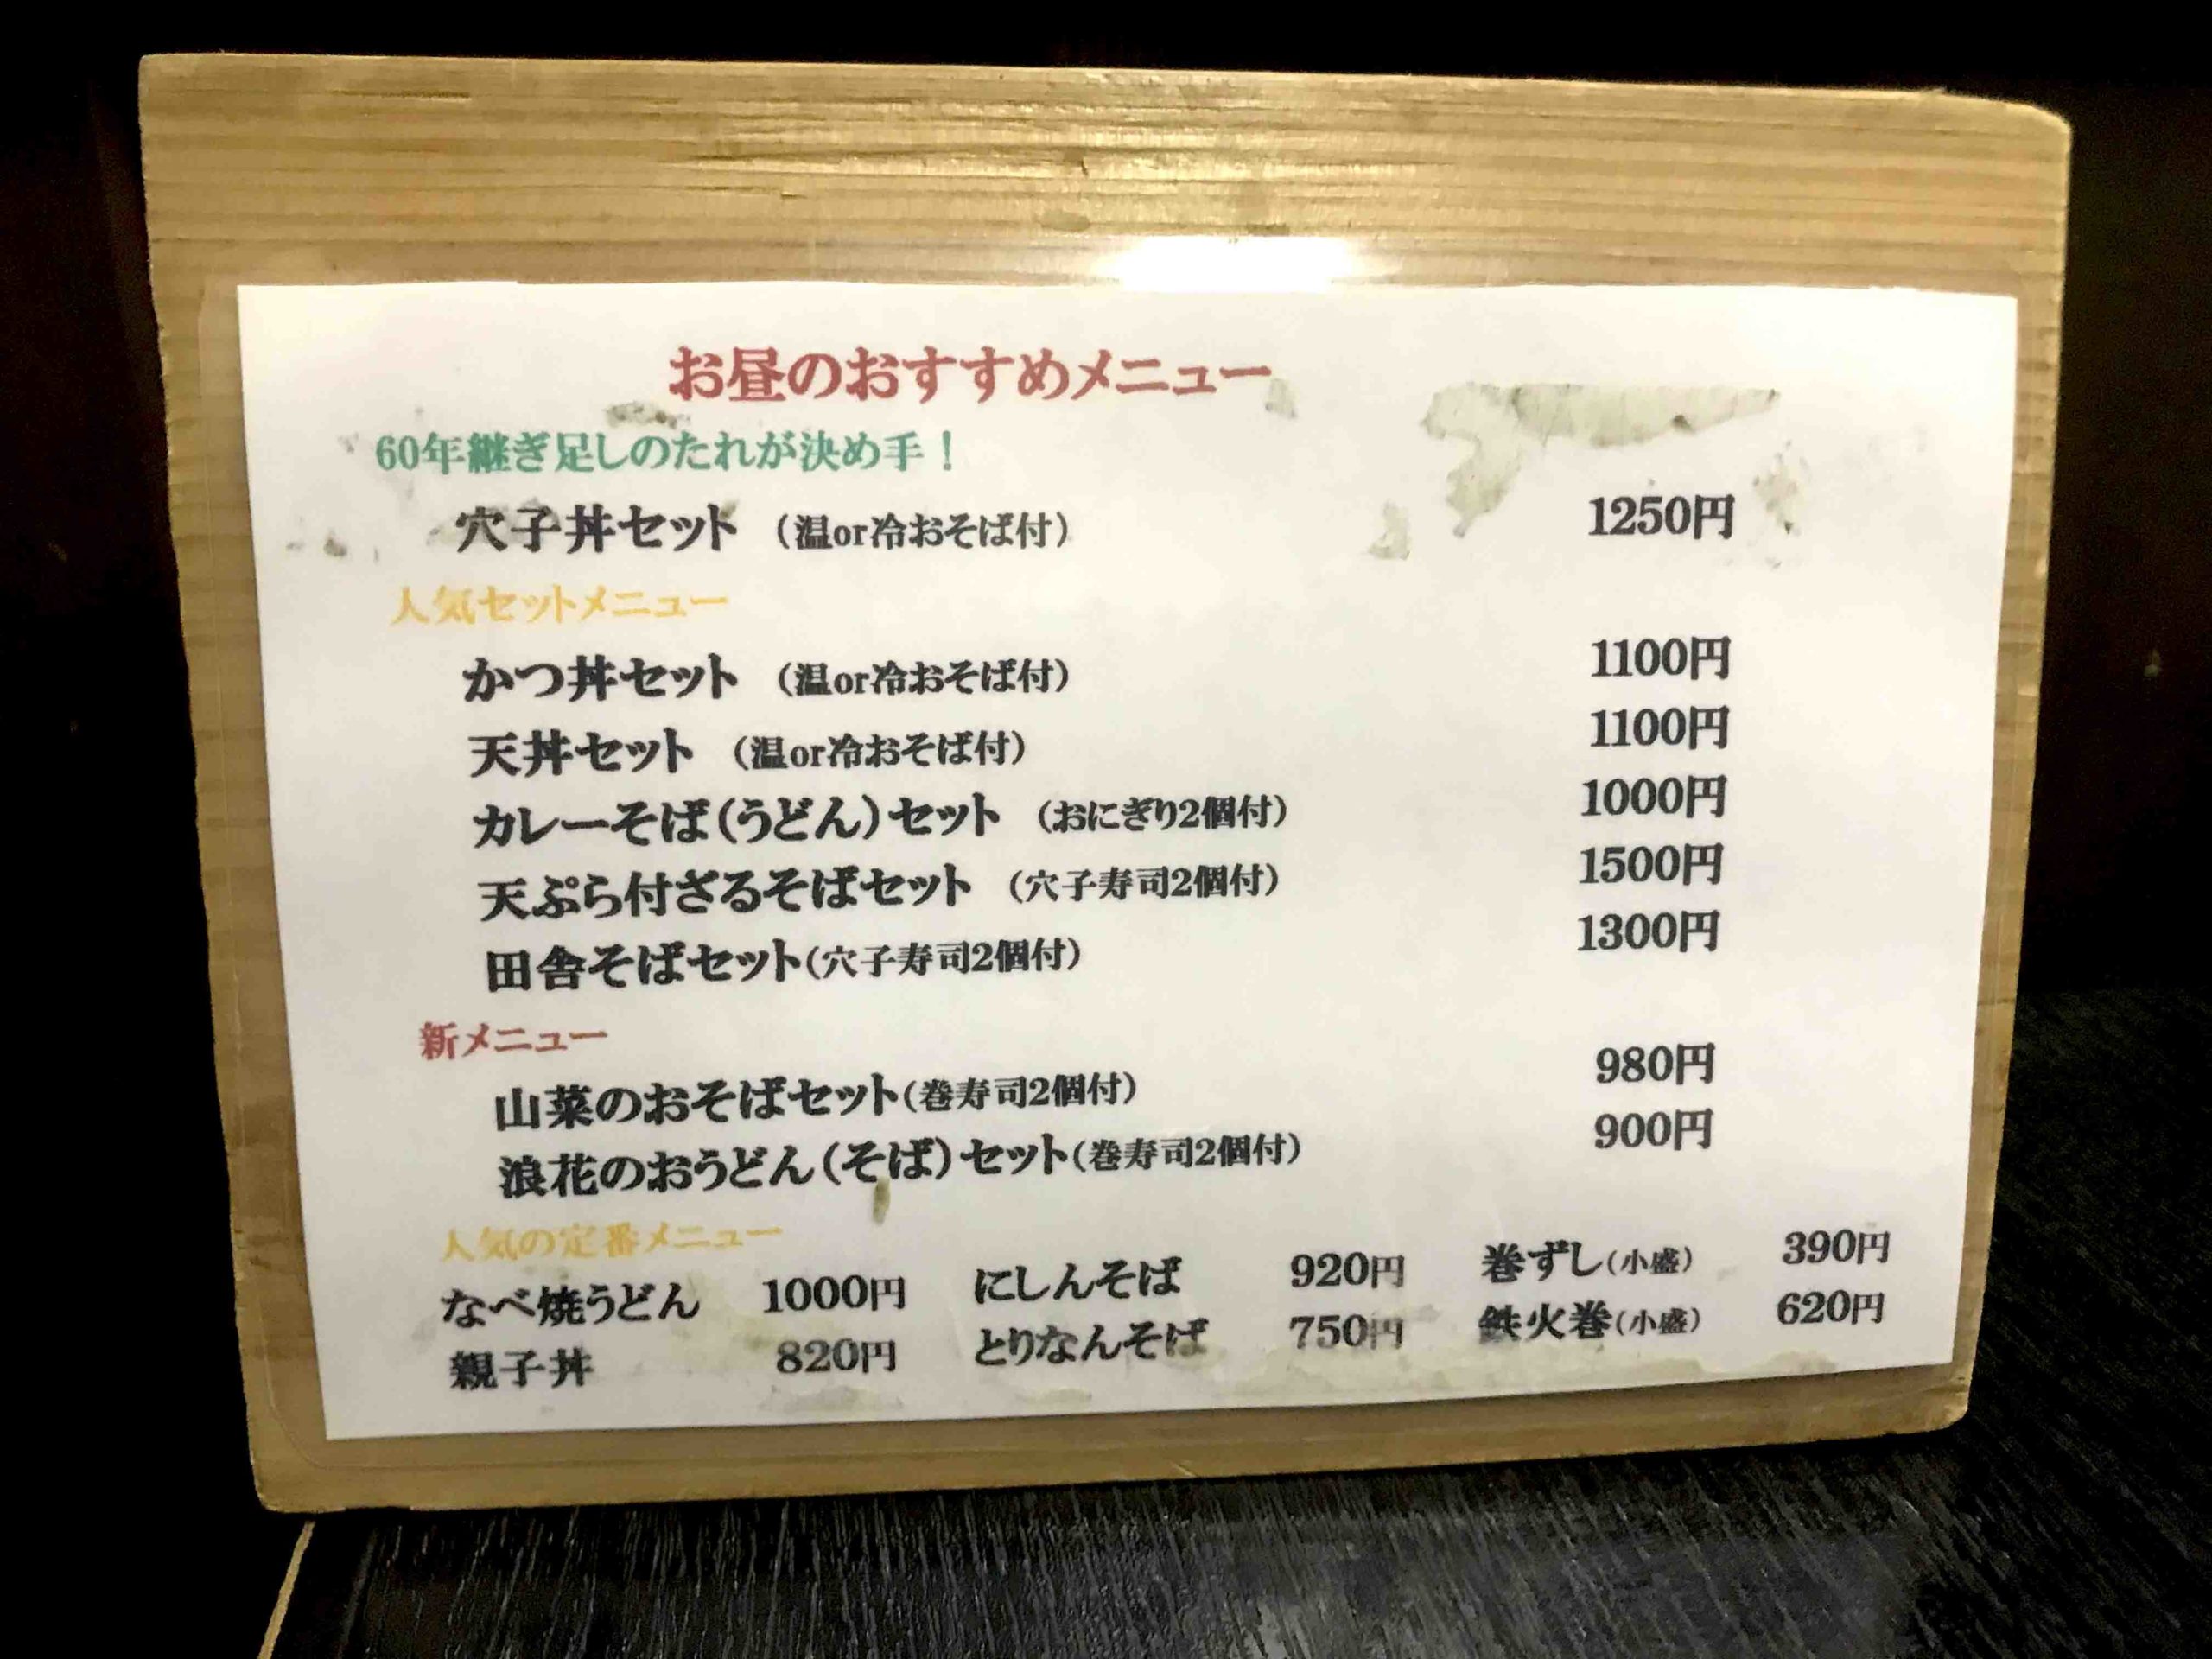 お昼のおすすめメニュー
60年継ぎ足しのたれが決め手！
穴子丼セット （温or冷おそば付） 1250円
人気セットメニュー
かつ丼セット （温or冷おそば付） 1100円
天丼セット （温or冷おそば付） 1100円
カレーそば（うどん）セット （おにぎり2個付） 1000円
天ぷら付ざるそばセット （穴子寿司2個付） 1500円
田舎そばセット（穴子寿司2個付） 1300円
新メニュー
山菜のおそばセット（巻寿司2個付） 980円
浪花のおうどん（そば）セット（巻寿司2個付） 900円
人気の定番メニュー
なべ焼うどん 1000円 にしんそば 920円 巻ずし（小盛） 390円
親子丼 820円 とりなんそば 750円 鉄火巻（小盛） 620円